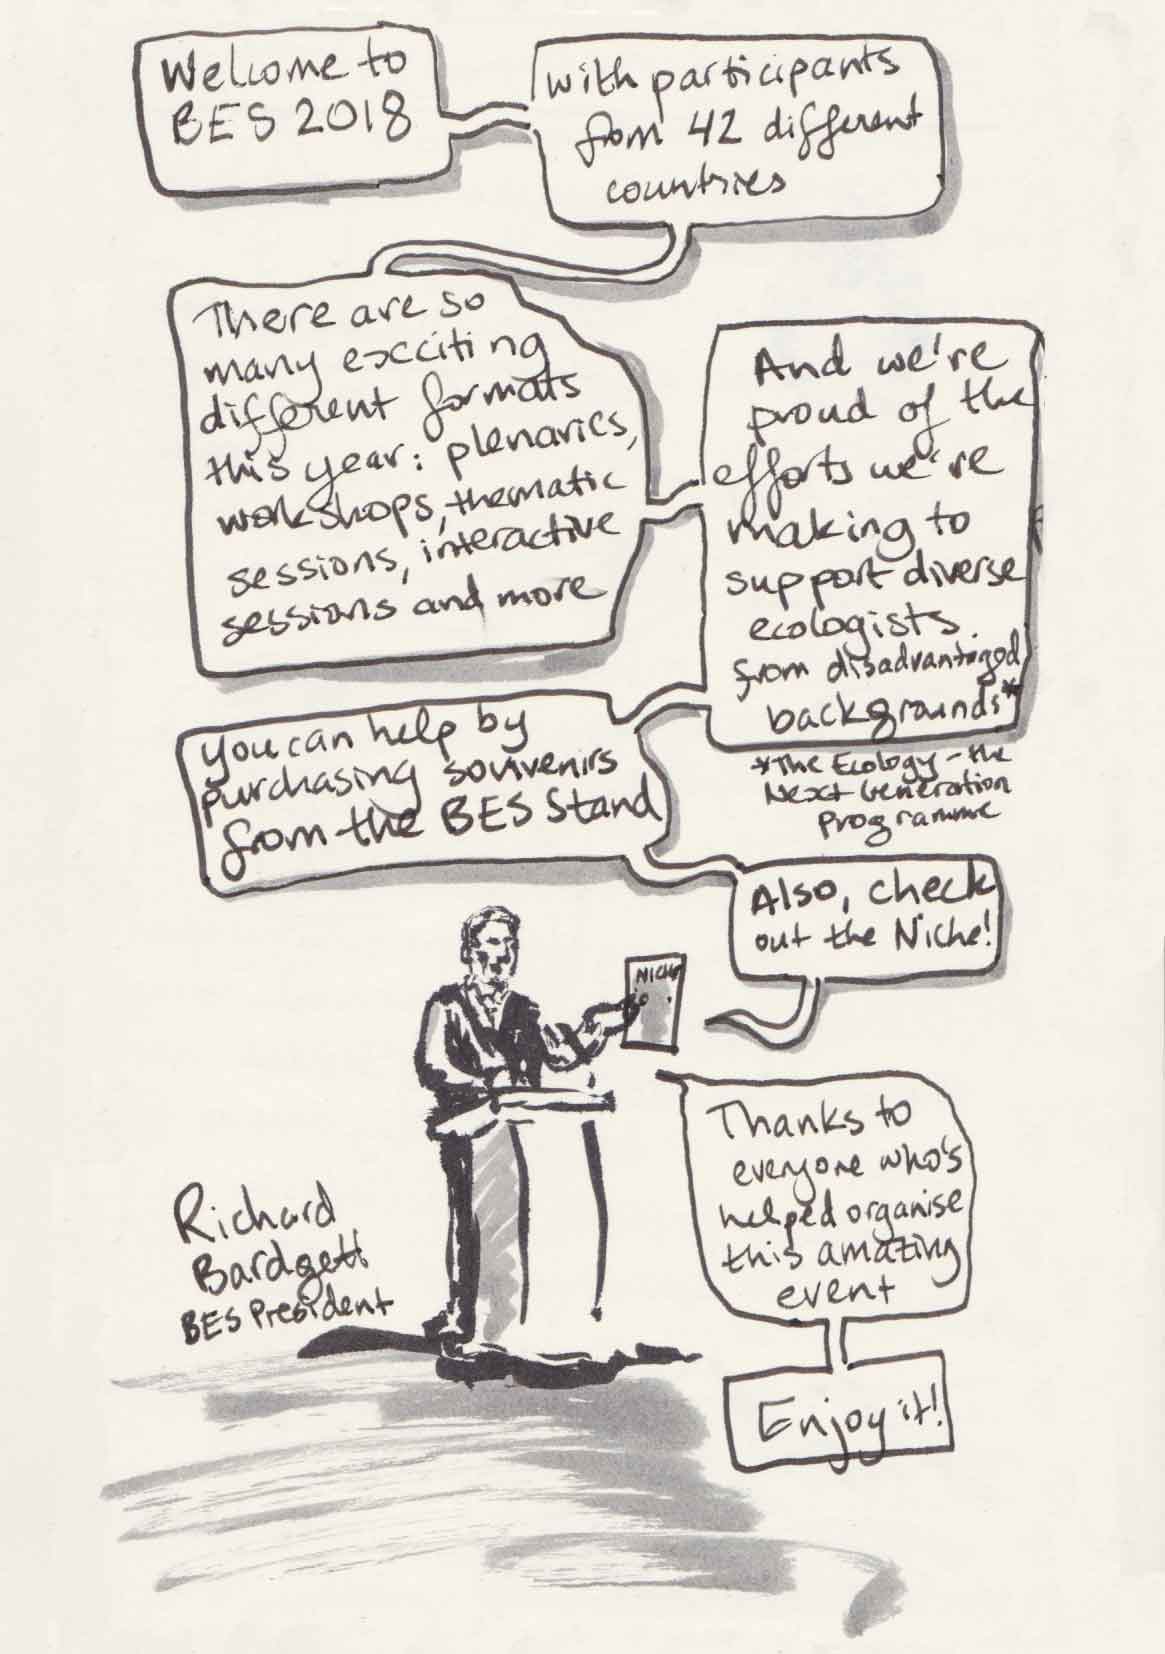 Welcome to
BES 2018
with participants
from 42 different
countries
There are so
many excciting
different formats
this year: plenaries,
workshops, thematic
sessions, interactive
sessions and more
And we're
proud of the
efforts we're
making to
support diverse
ecologists
from disadvantaged
backgrounds*
*The Ecology - the
Next Generation
Programme
you can help by
purchasing souvenirs
from the BES Stand
Also, check
out the Niche!
NICHE
Thanks to
everyone who's
helped organise
this amazing
event
Enjoy it!
Richard
Bardgett
BES President